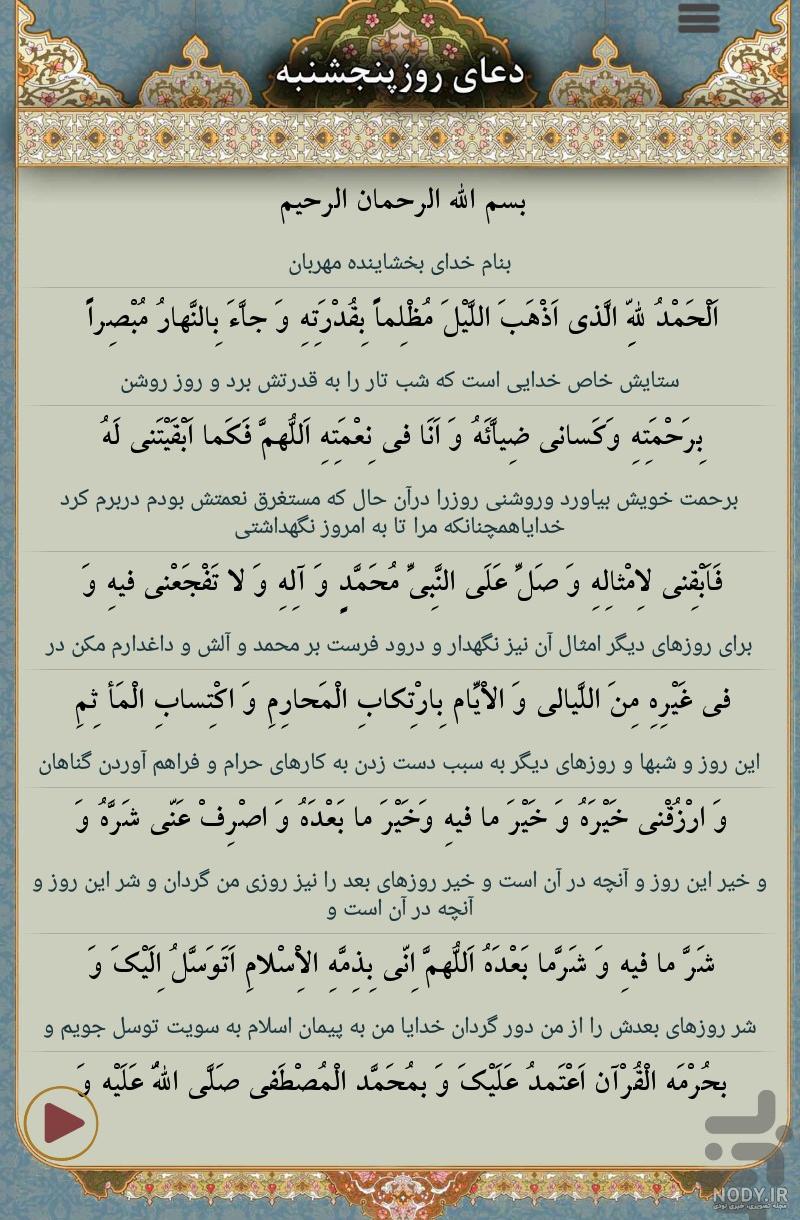 دعای روزپنجشنبه
بسم الله الرحمان الرحیم
بنام خدای بخشاینده مهربان
اَلْحَمْدُ لِلّهِ الَّذی اَذْهَبَ اللَّیْلَ مُظْلِماً بِقُدْرَتِهِ وَ جآَّءَ بِالنَّهارُ مُبْصِراً
ستایش خاص خدایی است که شب تار را به قدرتش برد و روز روشن
بِرَحْمَتِهِ وَکَسانی ضِیآَّئَهُ وَ اَنَا فی نِعْمَتِهِ اَللّهُمَّ فَکَما اَبْقَیْتَنی لَهُ
برحمت خویش بیاورد وروشنی روزرا درآن حال که مستغرق نعمتش بودم دربرم کرد
خدایاهمچنانکه مرا تا به امروز نگهداشتی
فَاَبْقِنی لاِمْثالِهِ وَ صَلِّ عَلَی النَّبِیِّ مُحَمَّدٍ وَ آلِهِ وَ لا تَفْجَعْنی فیهِ وَ
برای روزهای دیگر امثال آن نیز نگهدار و درود فرست بر محمد و آلش و داغدارم مکن در
فی غَیْرِهِ مِنَ اللَّیالی وَ الاْیّامِ بِارْتِکابِ الْمَحارِمِ وَ اکْتِسابِ الْمَأ ثِمِ
این روز و شبها و روزهای دیگر به سبب دست زدن به کارهای حرام و فراهم آوردن گناهان
وَ ارْزُقْنی خَیْرَهُ وَ خَیْرَ ما فیهِ وَخَیْرَ ما بَعْدَهُ وَ اصْرِفْ عَنّی شَرَّهُ وَ
و خیر این روز و آنچه در آن است و خیر روزهای بعد را نیز روزی من گردان و شر این روز و
آنچه در آن است و
شَرَّ ما فیهِ وَ شَرَّما بَعْدَهُ اَللّهُمَّ اِنّی بِذِمَّهِ الاِْسْلامِ اَتَوَسَّلُ اِلَیْکَ وَ
شر روزهای بعدش را از من دور گردان خدایا من به پیمان اسلام به سویت توسل جویم و
بِحُرْمَهِ الْقُرْآنِ اَعْتَمِدُ عَلَیْکَ وَ بِمُحَمَّدٍ الْمُصْطَفی صَلَّی اللّهُ عَلَیْهِ وَ
NODY.IR
مجله تصویری، خبری نودی